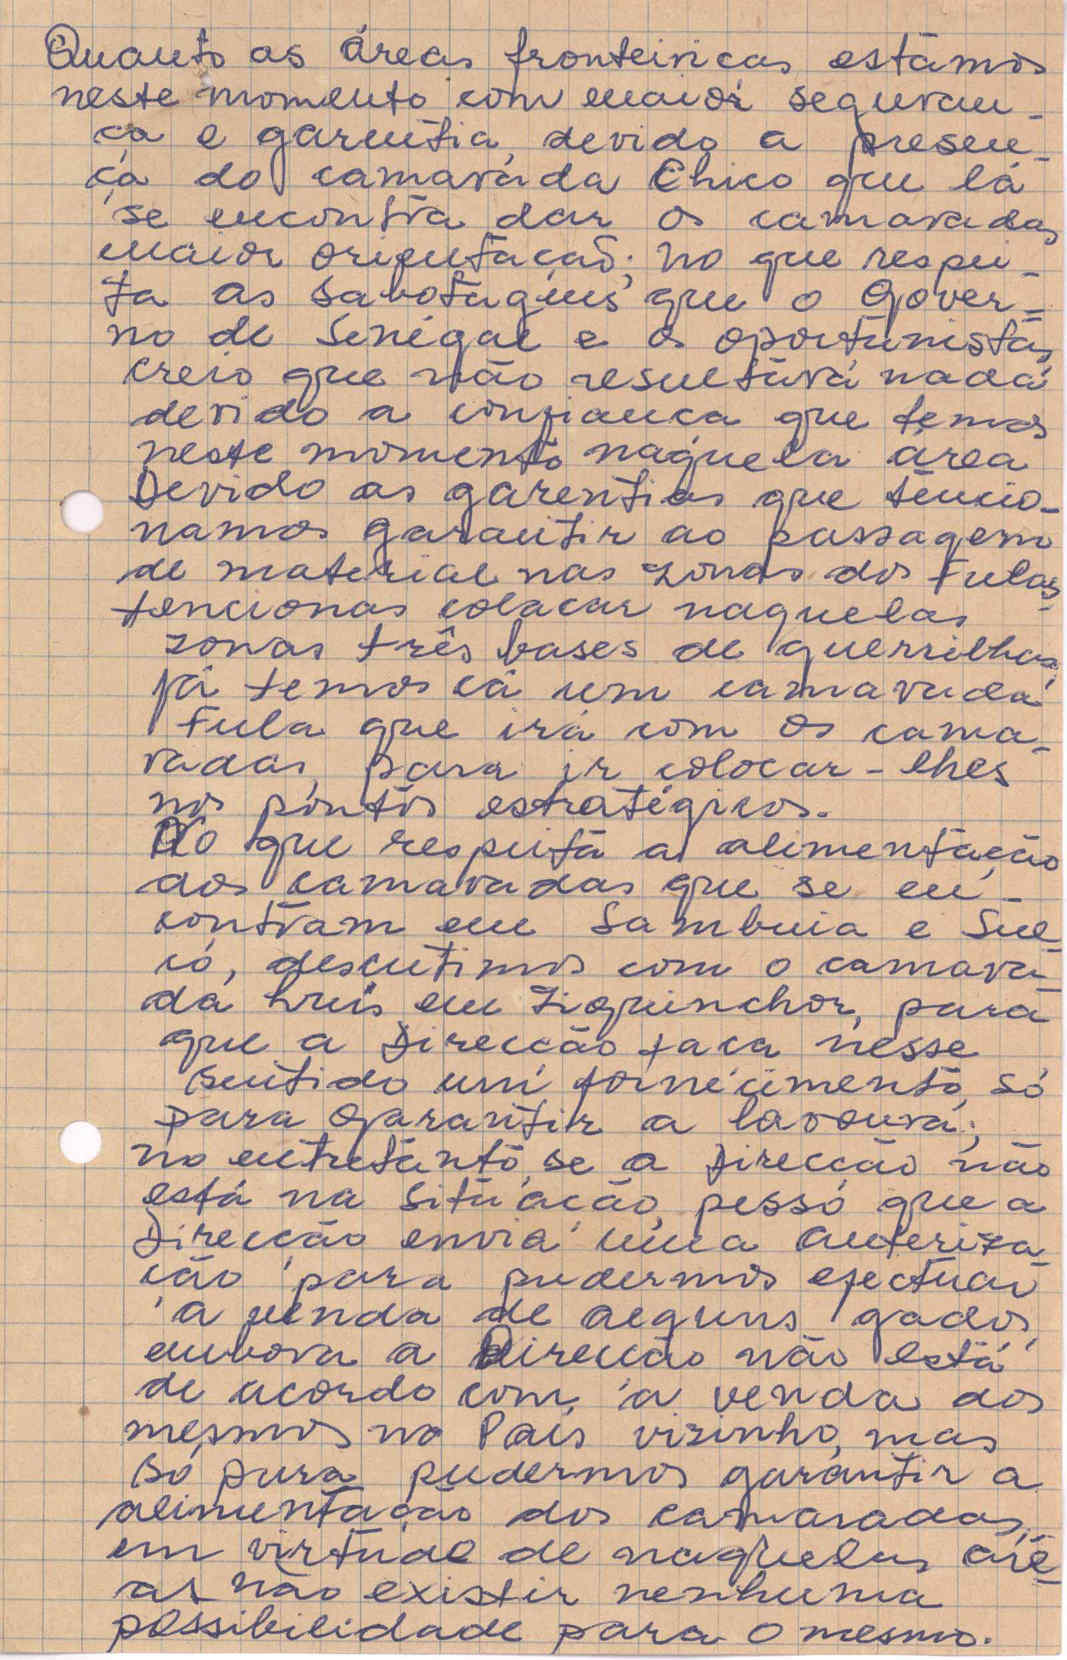 Quanto as áreas fronteiricas estamos
neste momento com maior seguran-
ça e garentia, devido a presen-
ça do camarada Chico que lá
se encontra dar os camaradas
maior orientação; no que respei-
ta as sabotagens que o Gover-
no de Senegal e os oportunistas,
creio que não resultará nada
devido a confiança que temos
neste momento naquela área
Devido as garentias que tencio-
namos garantir ao passagem
de material nas zonas dos Fulas,
tencionas colacar naquelas
zonas três bases de guerrilhas,
já temos cá um camarada
Fula que irá com os cama-
radas, para ir colocar-lhes
nos pontos estratégicos.
No que respeita a alimentação
dos camaradas que se en-
contram em Sambuia e Sul-
có, descutimos com o camara-
da Luis em Ziguinchor, para
que a Direcção faca nesse
sentido um fornecimento, só
para garantir a lavoura;
no entretanto, se a Direcção não
está na situação, pesso que a
Direcção envia uma auteriza
ção para pudermos efectuar
a venda de alguns gados,
embora a Direcção não está
de acordo com a venda dos
mesmos no País vizinho, mas
só para pudermos garantir a
alimentação dos camaradas,
em virtude de naquelas aré-
as não existir nenhuma
possibilidade para o mesmo.